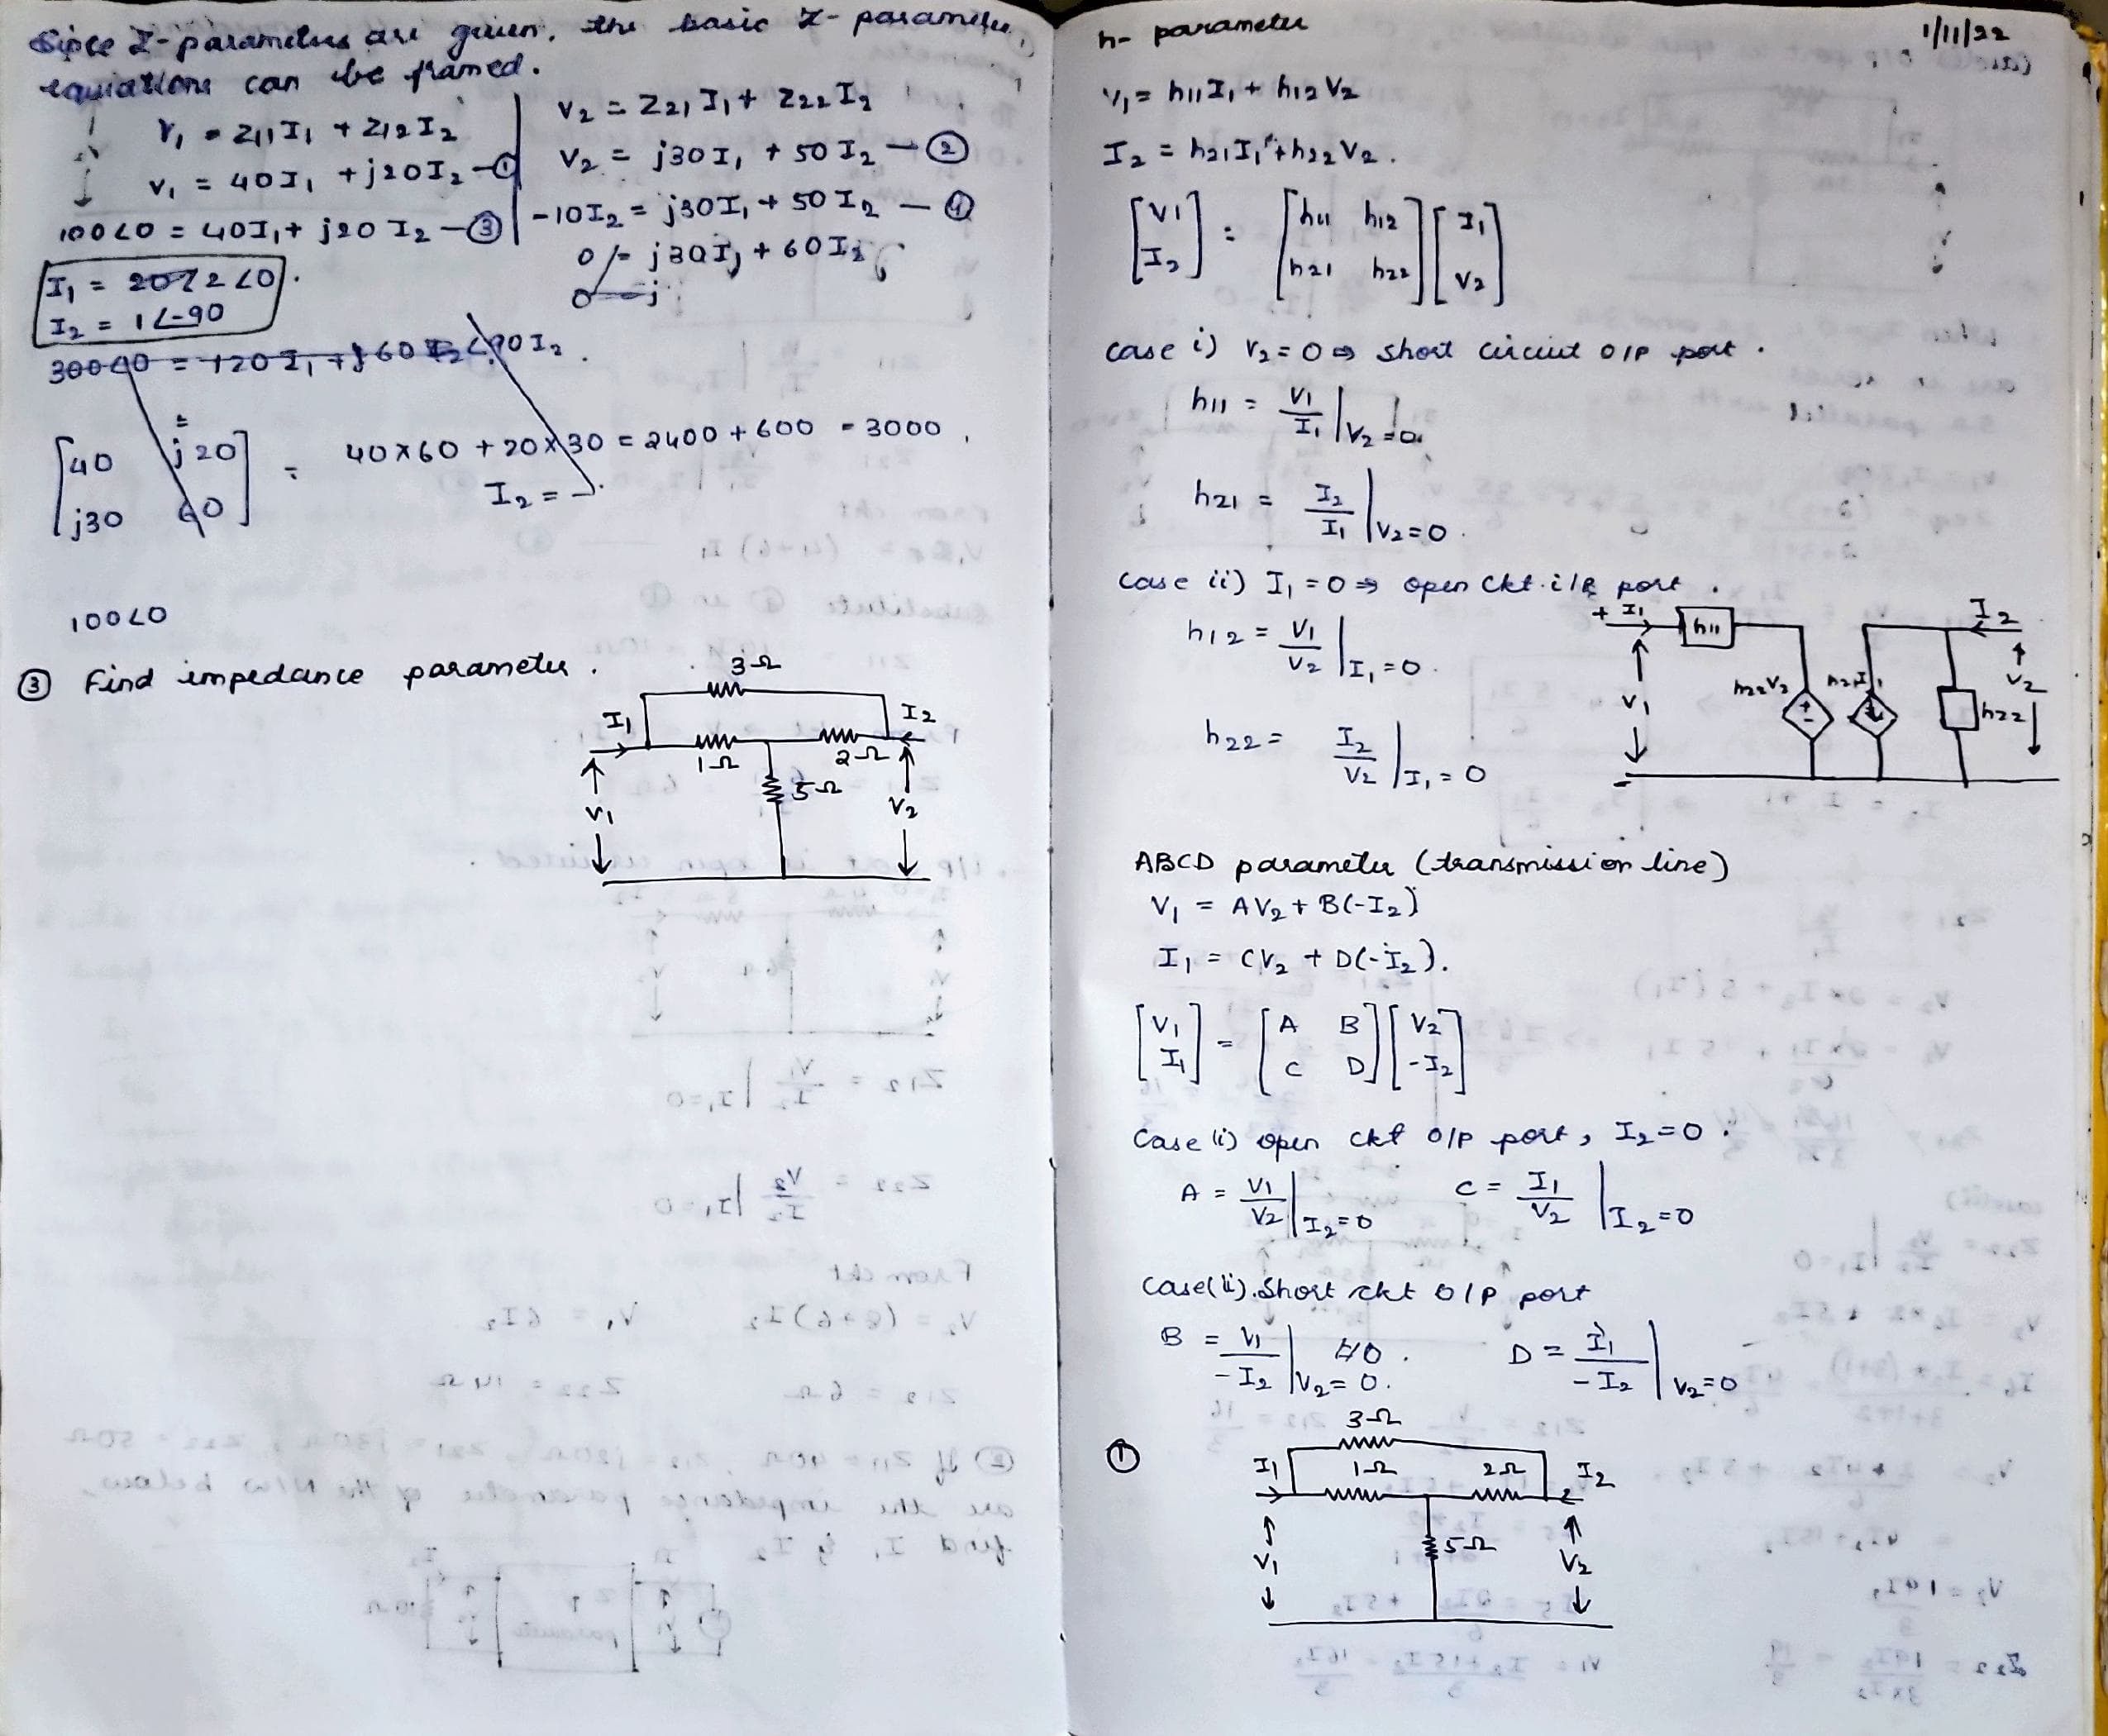 Since Z-parameters are given, the basic Z-parameter
equations can be framed.
V₁ = Z₁₁I₁ + Z₁₂I₂
V₁ = 40I₁ + j20I₂ —①
100∠0 = 40I₁ + j20 I₂ —③
I₁ = 2∠0.
I₂ = 1∠-90
V₂ = Z₂₁ I₁ + Z₂₂ I₂
V₂ = j30 I₁ + 50 I₂ —②
-10I₂ = j30I₁ + 50 I₂ —④
0 = j30I₁ + 60I₂
0 = j
300∠0 = 120I₁ + j60 I₂∠90 I₂.
[40 j20
j30 60] = 40x60 + 20x30 = 2400 + 600 = 3000,
I₂ =
100∠0
③ Find impedance parameter.
3Ω
I₁ I₂
1Ω 2Ω
5Ω
V₁ V₂
1/11/22
h- parameter
V₁ = h₁₁I₁ + h₁₂V₂
I₂ = h₂₁I₁ + h₂₂V₂.
[V₁
I₂] = [h₁₁ h₁₂
h₂₁ h₂₂] [I₁
V₂]
case i) V₂ = 0 ⇒ short circuit o/p port.
h₁₁ = V₁/I₁ |V₂=0.
h₂₁ = I₂/I₁ |V₂=0.
case ii) I₁ = 0 ⇒ open ckt. i/p port.
h₁₂ = V₁/V₂ |I₁=0.
h₂₂ = I₂/V₂ |I₁=0
+ I₁ h₁₁ I₂
V₁ h₂₂V₂ + - h₂₁I₁ h₂₂ V₂
-
ABCD parameter (transmission line)
V₁ = AV₂ + B(-I₂)
I₁ = CV₂ + D(-I₂).
[V₁
I₁] = [A B
C D] [V₂
-I₂]
Case (i) open ckt o/p port, I₂=0.
A = V₁/V₂ |I₂=0 C = I₁/V₂ |I₂=0
case(ii). Short ckt o/p port
B = V₁/-I₂ |V₂=0. D = I₁/-I₂ |V₂=0
①
3Ω
I₁ 1Ω 2Ω I₂
5Ω
V₁ V₂